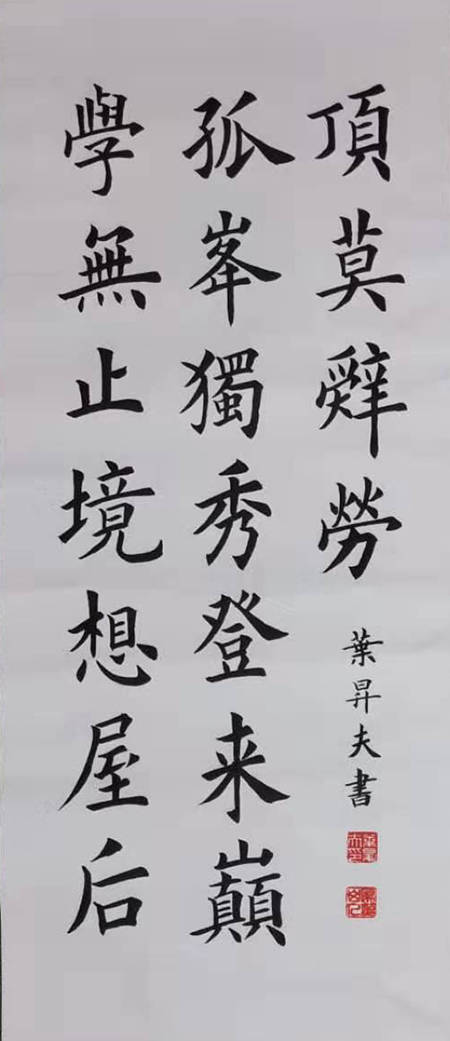 學無止境想屋后
孤峯獨秀登来巔
頂莫辤勞
葉昇夫書